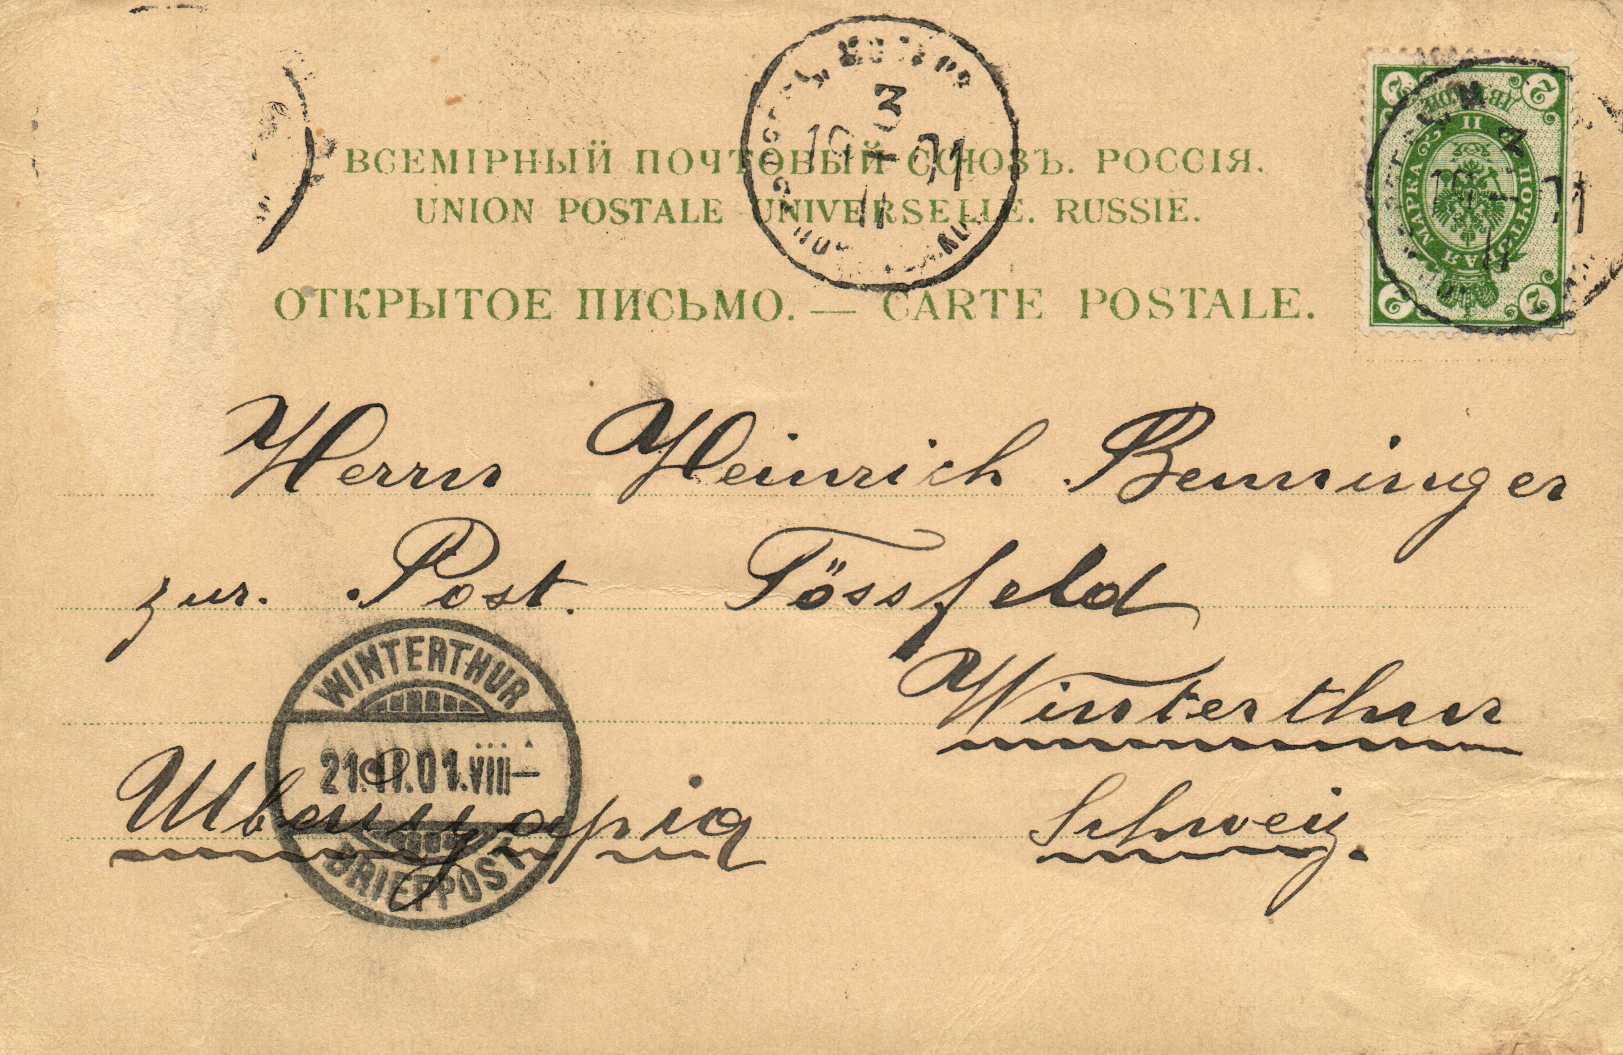 ВСЕМІРНЫЙ ПОЧТОВЫЙ СОЮЗЪ. РОССІЯ.
UNION POSTALE UNIVERSELLE. RUSSIE.
ОТКРЫТОЕ ПИСЬМО. — CARTE POSTALE.
ПОЧТОВАЯ МАРКА
2 2 2 2
Herrn Heinrich Benninger
zur. Post. Tössfeld
Winterthur
Швейцарія Schweiz.
WINTERTHUR
21.II.01.VIII—
BRIEFPOST